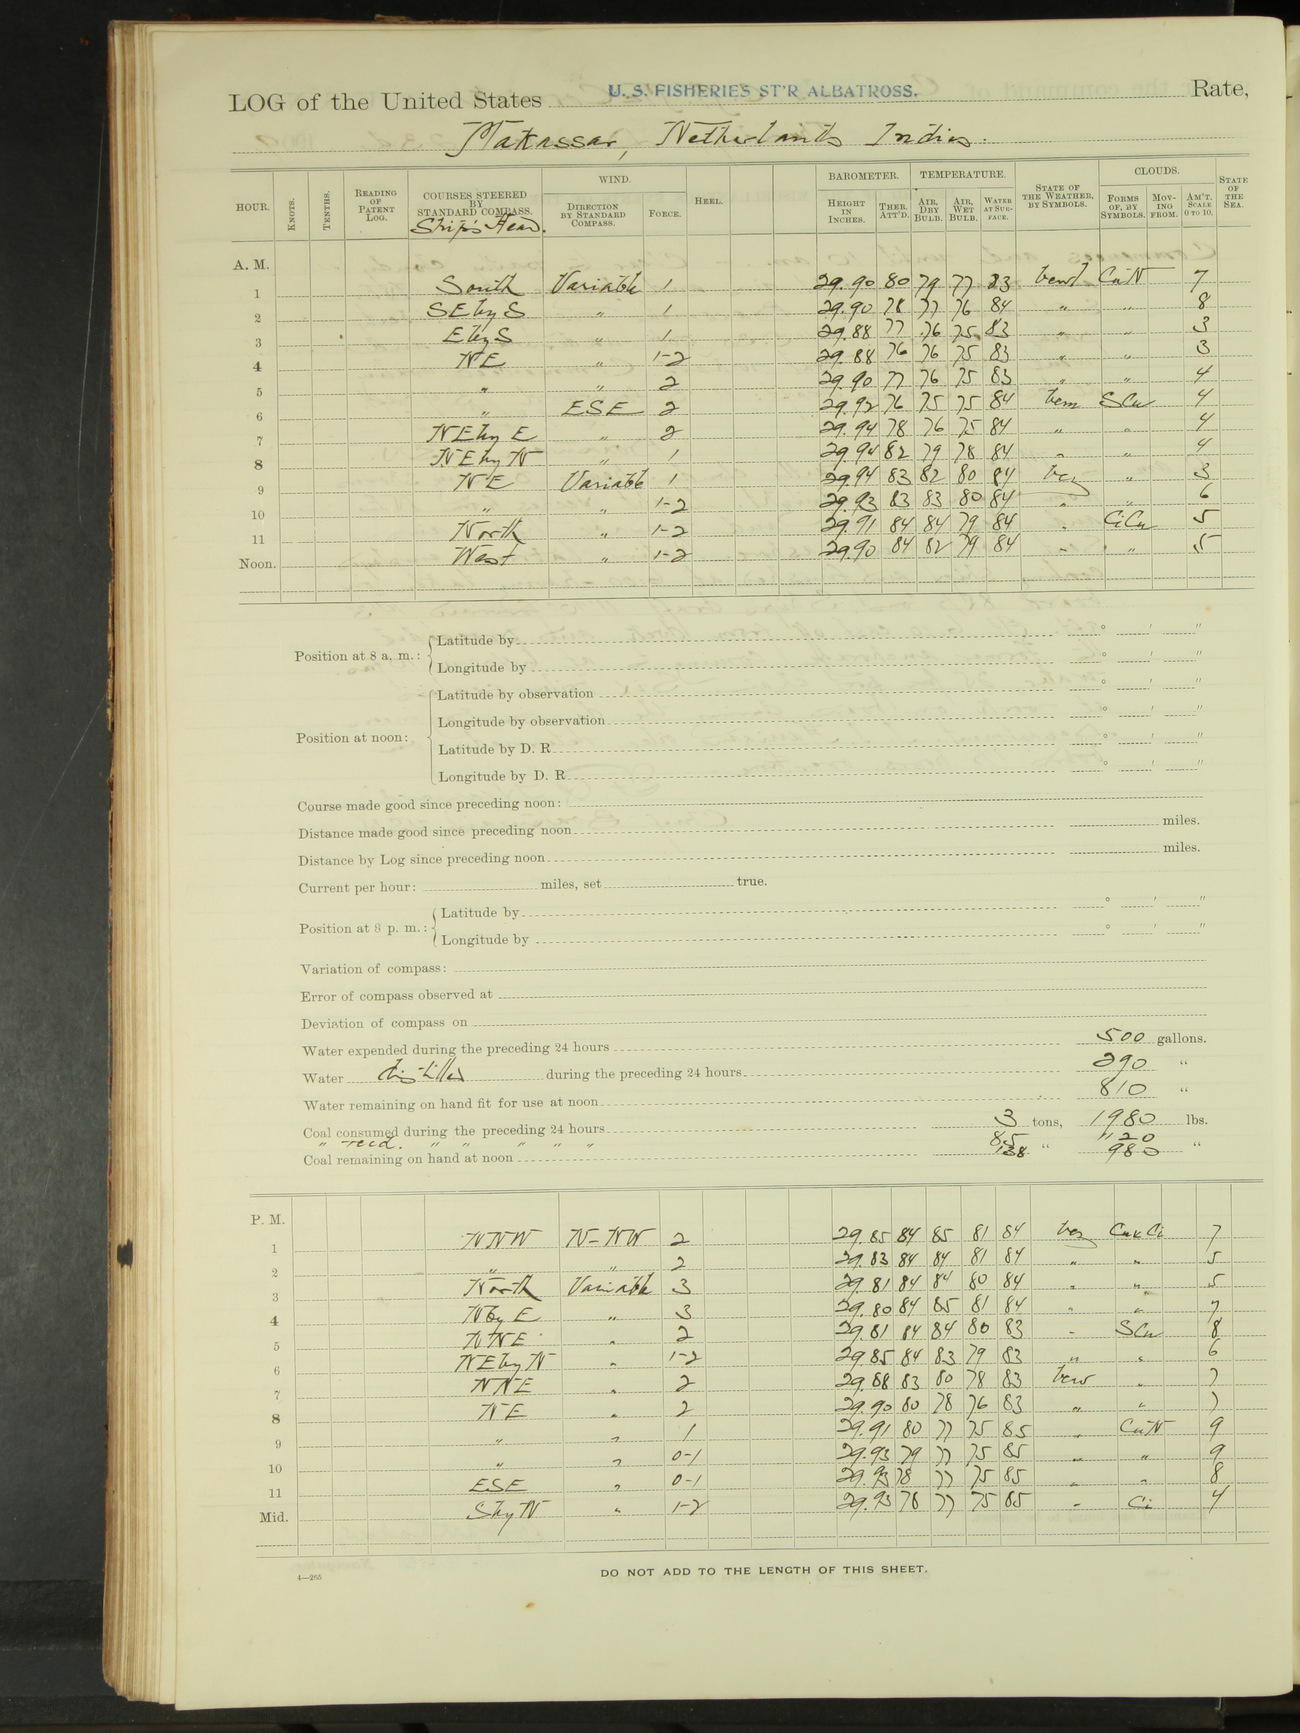 LOG of the United States U. S. FISHERIES ST'R ALBATROSS. Rate,
Makassar, Netherlands Indies.
HOUR. KNOTS. TENTHS. READING OF PATENT LOG. COURSES STEERED BY STANDARD COMPASS. Ship's Head. WIND. DIRECTION BY STANDARD COMPASS. FORCE. HEEL. BAROMETER. HEIGHT IN INCHES. THER. ATT'D. TEMPERATURE. AIR, DRY BULB. AIR, WET BULB. WATER AT SURFACE. STATE OF THE WEATHER, BY SYMBOLS. CLOUDS. FORMS OF, BY SYMBOLS. MOVING FROM. AM'T. SCALE 0 TO 10. STATE OF THE SEA.
A. M.
1 South Variable 1 29.90 80 79 77 83 Cu N 7
2 SE by S " 1 29.90 78 77 76 84 " " 8
3 E by S " 1 29.88 77 76 75 83 " " 3
4 NE " 1-2 29.88 76 76 75 83 " " 3
5 " " 2 29.90 77 76 75 83 " " 4
6 " ESE 2 29.92 76 75 75 84 bcm S Cu 4
7 NE by E " 2 29.94 78 76 75 84 " " 4
8 NE by N " 1 29.94 82 79 78 84 " " 4
9 NE Variable 1 29.94 83 82 80 84 bcz " 3
10 " " 1-2 29.93 83 83 80 84 " " 6
11 North " 1-2 29.91 84 84 79 84 " Ci Cu 5
Noon. West " 1-2 29.90 84 82 79 84 " " 5
Position at 8 a. m.: Latitude by ° ' "
Longitude by ° ' "
Position at noon: Latitude by observation ° ' "
Longitude by observation ° ' "
Latitude by D. R ° ' "
Longitude by D. R ° ' "
Course made good since preceding noon:
Distance made good since preceding noon miles.
Distance by Log since preceding noon miles.
Current per hour: miles, set true.
Position at 8 p. m.: Latitude by ° ' "
Longitude by ° ' "
Variation of compass:
Error of compass observed at
Deviation of compass on
Water expended during the preceding 24 hours 500 gallons.
Water distilled during the preceding 24 hours 290 "
Water remaining on hand fit for use at noon 810 "
Coal consumed during the preceding 24 hours 3 tons, 1980 lbs.
" recd. " " " " " 85 1120
Coal remaining on hand at noon 138 " 980 "
P. M.
1 NNW N-NW 2 29.85 84 85 81 84 bcz Cu & Ci 7
2 " " 2 29.83 84 84 81 84 " " 5
3 North Variable 3 29.81 84 84 80 84 " " 5
4 N by E " 3 29.80 84 85 81 84 " " 7
5 NNE " 2 29.81 84 84 80 83 " S Cu 8
6 NE by N " 1-2 29.85 84 83 79 83 " " 6
7 NNE " 2 29.88 83 80 78 83 " 7
8 NE " 2 29.90 80 78 76 83 " " 7
9 " " 1 29.91 80 77 75 85 " Cu N 9
10 " " 0-1 29.93 79 77 75 85 " " 9
11 ESE " 0-1 29.93 78 77 75 85 " " 8
Mid. " 1-2 29.93 78 77 75 85 " Ci 4
4—265
DO NOT ADD TO THE LENGTH OF THIS SHEET.